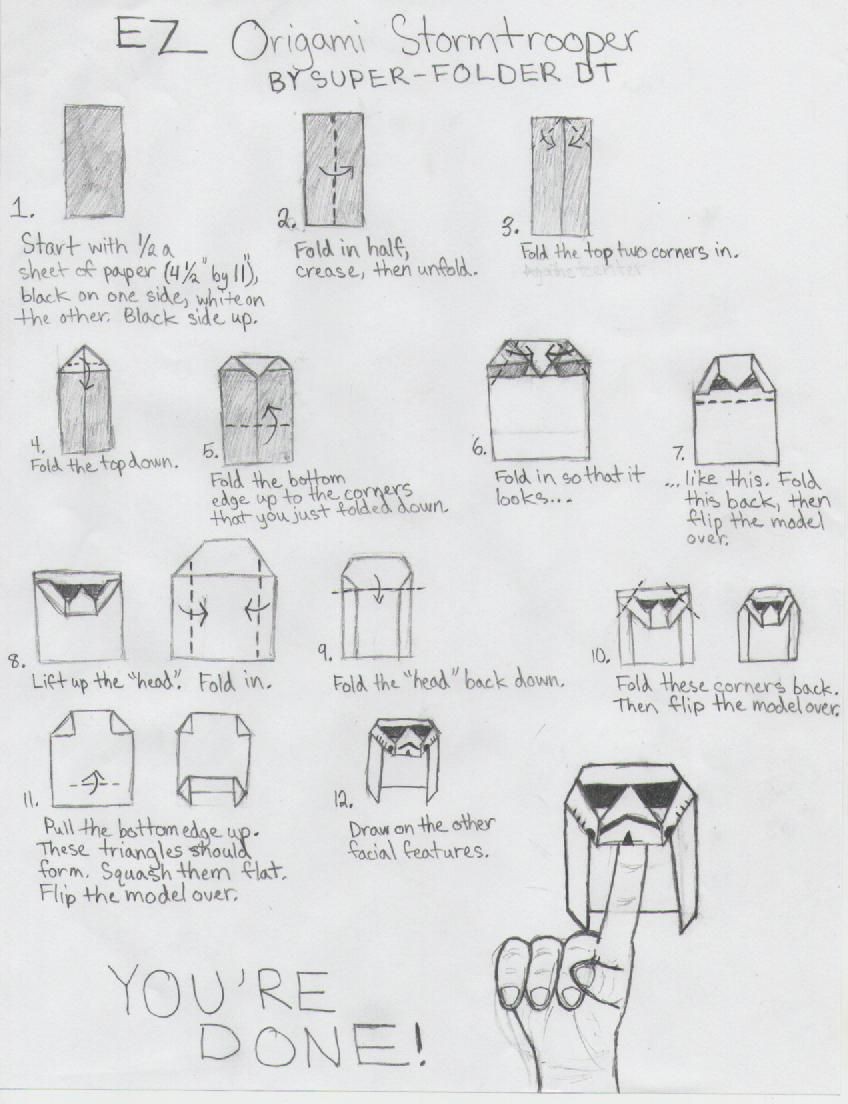 EZ Origami Stormtrooper
BY SUPER-FOLDER DT
1.
Start with 1/2 a
sheet of paper (4 1/2" by 11"),
black on one side, white on
the other. Black side up.
2.
Fold in half,
crease, then unfold.
3.
Fold the top two corners in.
4.
Fold the top down.
5.
Fold the bottom
edge up to the corners
that you just folded down.
6.
Fold in so that it
looks...
7.
...like this. Fold
this back, then
flip the model
over.
8.
Lift up the "head". Fold in.
9.
Fold the "head" back down.
10.
Fold these corners back.
Then flip the model over.
11.
Pull the bottom edge up.
These triangles should
form. Squash them flat.
Flip the model over.
12.
Draw on the other
facial features.
YOU'RE
DONE!